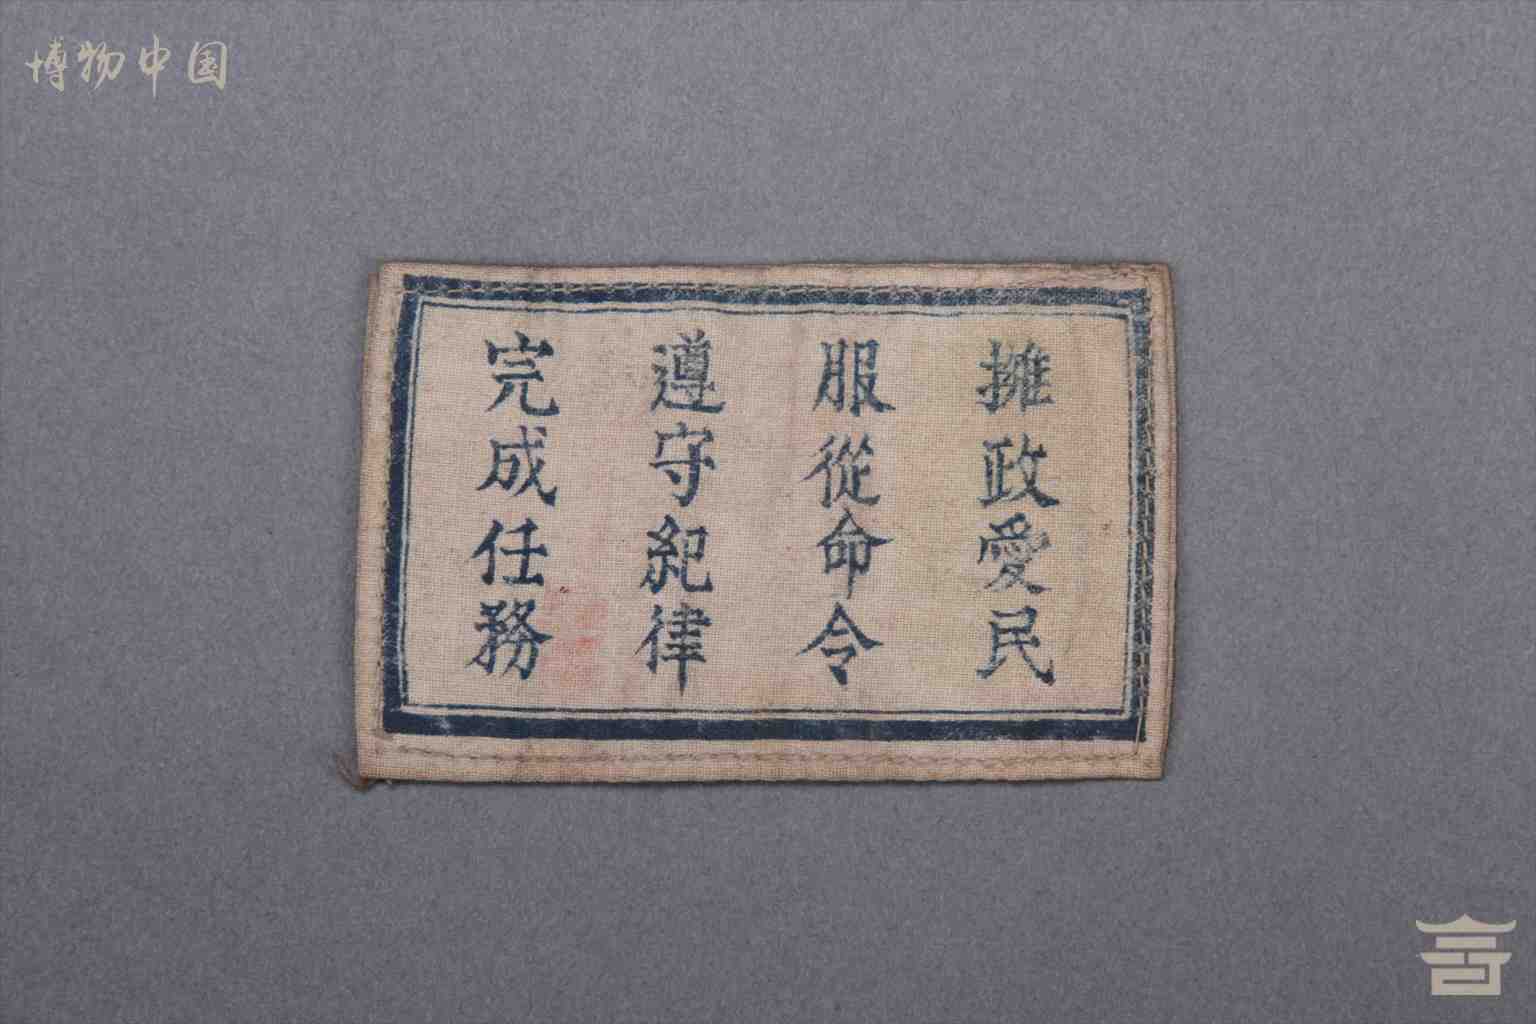 博物中国
擁政愛民
服從命令
遵守紀律
完成任務